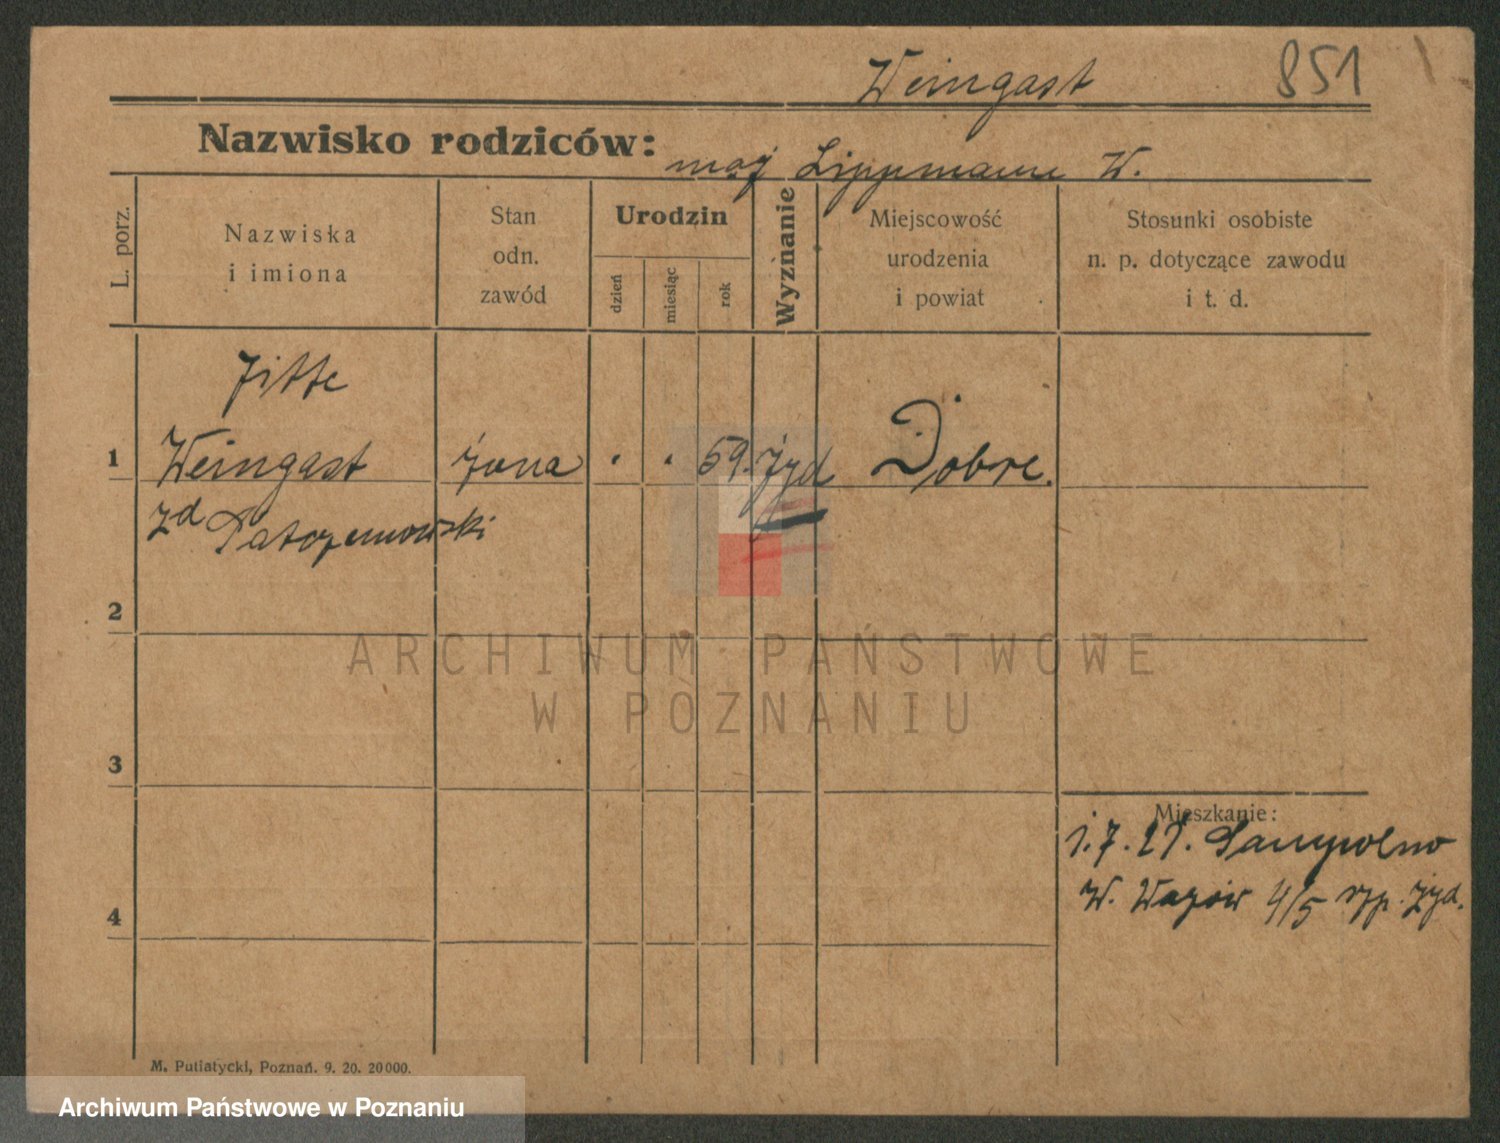 Weingast 851
Nazwisko rodziców: mąż Lippmann W.
L. porz.
Nazwiska
i imiona
Stan
odn.
zawód
Urodzin
dzień
miesiąc
rok
Wyznanie
Miejscowość
urodzenia
i powiat
Stosunki osobiste
n. p. dotyczące zawodu
i t. d.
Jitte
1 Weingast żona . . 59. żyd Dobre.
zd
2
ARCHIWUM PAŃSTWOWE
W POZNANIU
3
Mieszkanie:
1.7.21. Sampolno
W.
4/5
żyd.
4
M. Putiatycki, Poznań. 9. 20. 20000.
Archiwum Państwowe w Poznaniu